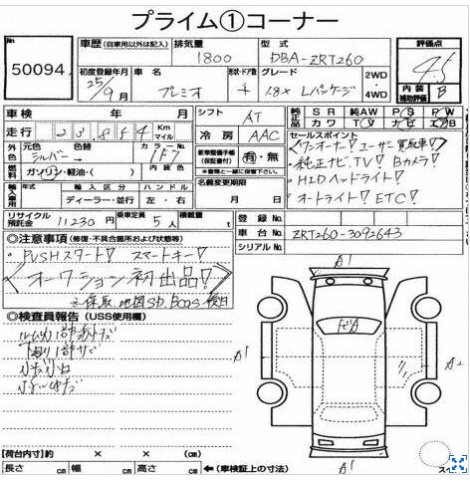 プライム①コーナー
No 50094
車歴(自家用以外は記入) 排気量 1800 型式 DBA-ZRT260 評価点 4.5
初度登録年月 25/9月 車名 プレミオ 形状・ドア数 4 グレード 1.8X Lパッケージ 2WD・4WD 内装補助評価 B
車検 年 月 シフト AT 純正品 SR 純AW PS PW
走行 23854 Km マイル 冷房 AAC カワ TV ナビ エアB
外色 元色 シルバー 色替 カラーNo. 1F7 内装色
燃料 ガソリン・軽油・( )
新車整備手帳(保証書付) 有・無
※書類と一緒に保管下さい。
名義変更期限 月 日
セールスポイント
・ワンオーナー! ユーザー買取車!
・純正ナビ.TV! Bカメラ!
・HIDヘッドライト!
・オートライト! ETC!
輸入車 年式 輸入区分 ハンドル
ディーラー・並行 左・右
リサイクル預託金 11230円 乗車定員 5人 積載量 t
登録No.
車台No. ZRT260-3092643
シリアルNo.
◎注意事項(修復・不具合箇所および状態等)
・PUSHスタート! スマートキー!
オークション初出品!
保取 地図SD. Books 後日
◎検査員報告(USS使用欄)
A1
A1
A1
A2
【荷台内寸】約 × × (cm)
長さ cm 幅 cm 高さ cm ←(車検証上の寸法)